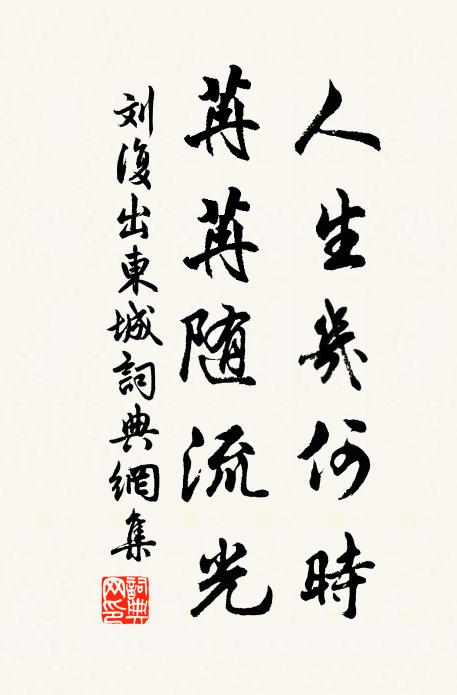 人生幾何時
苒苒随流光
刘復出東城詞典網集
詞典
网印